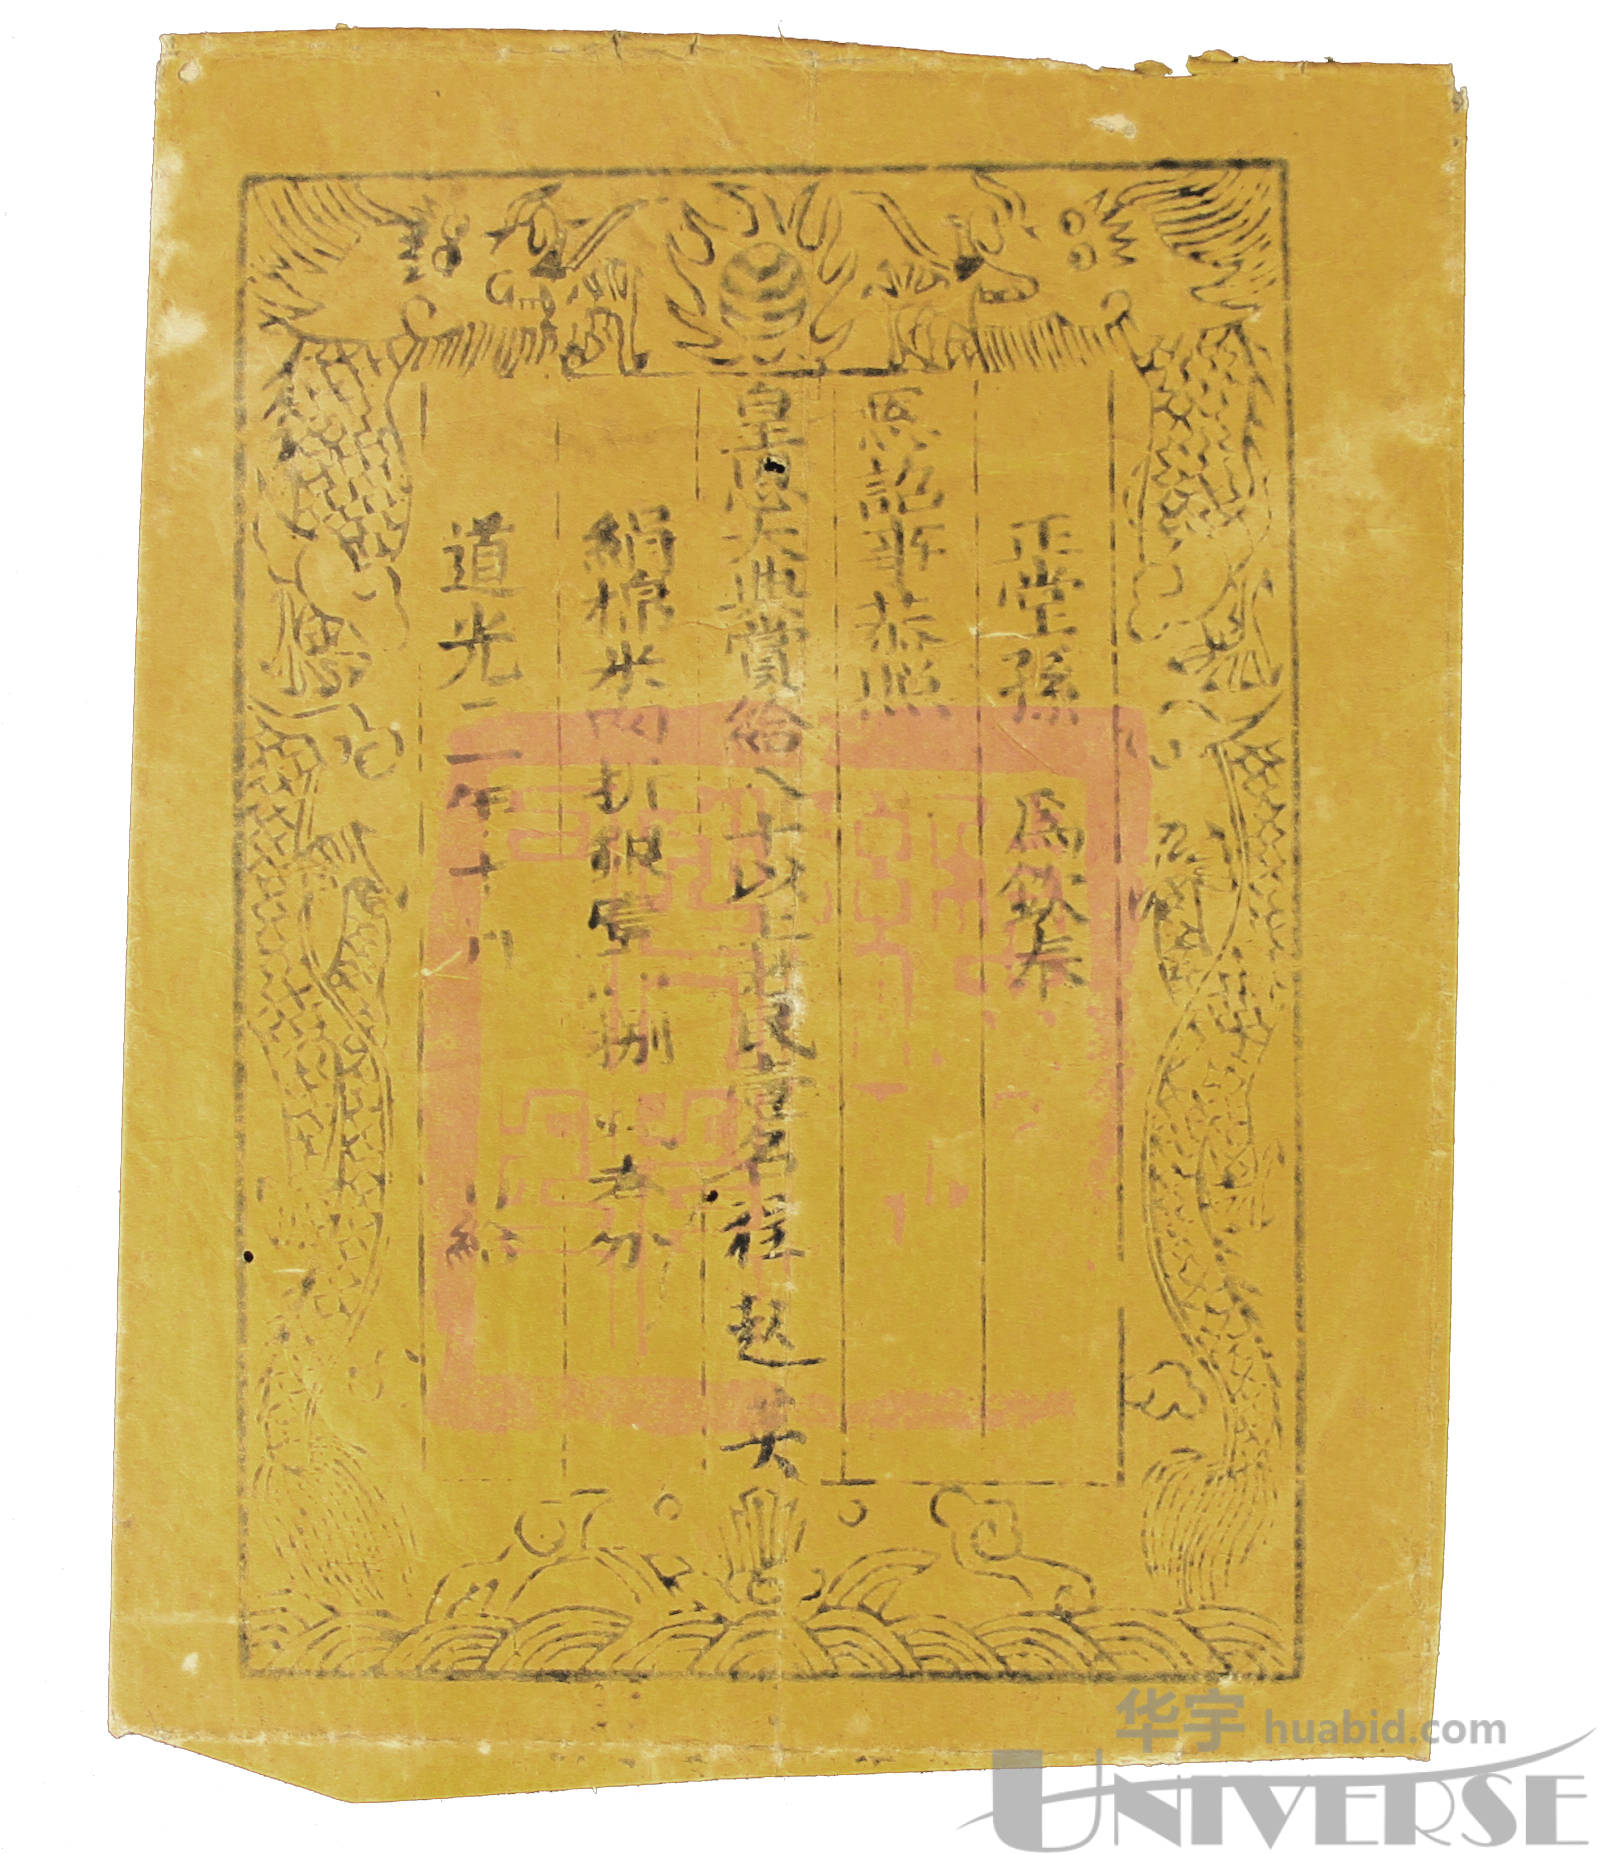 正堂孫 為欽奉
恩詔事恭照
皇恩大典賞給八十以上
良 名程 趙 英
絹棉米肉折銀壹 捌 者
道光二年十 月 給
华宇 huabid.com
UNIVERSE